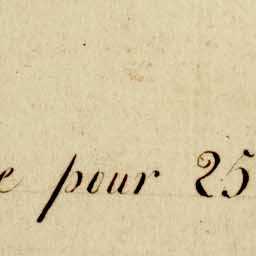 e pour 25